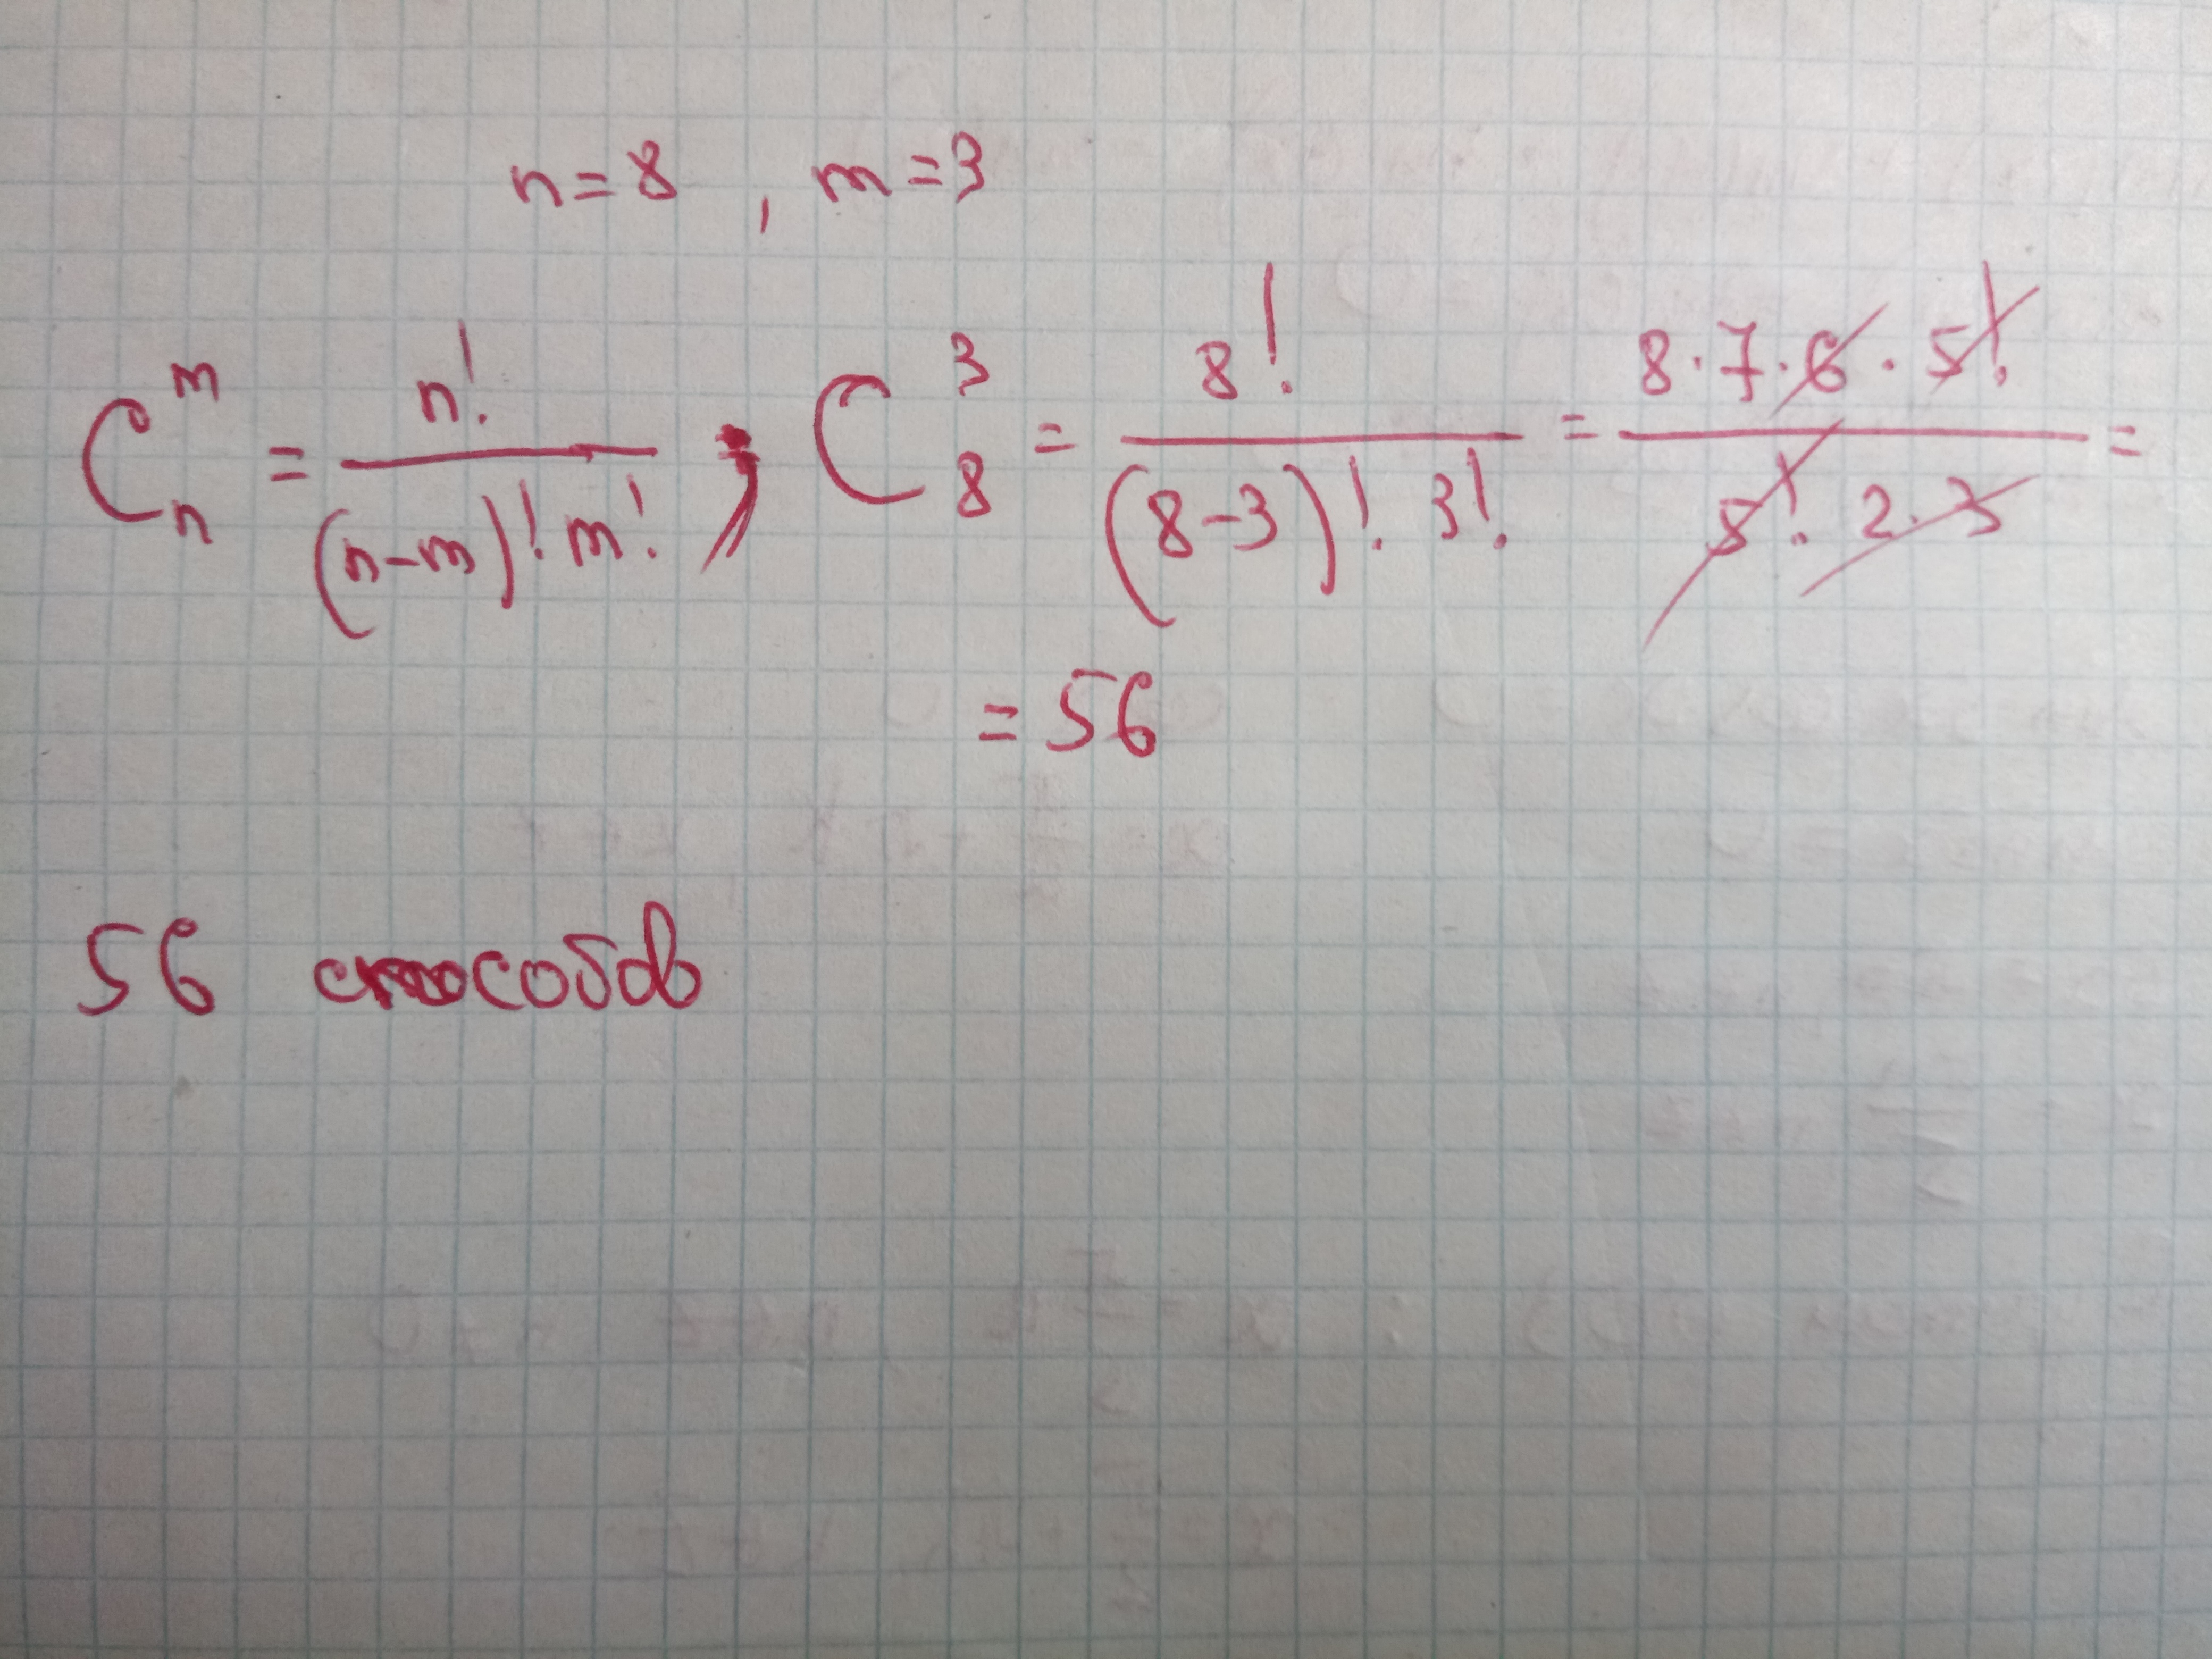 n=8, m=3
C_n^m = n!/((n-m)! m!) ; C_8^3 = 8!/((8-3)! 3!) = 8·7·6·5!/(5! 2·3) =
= 56
56 способов